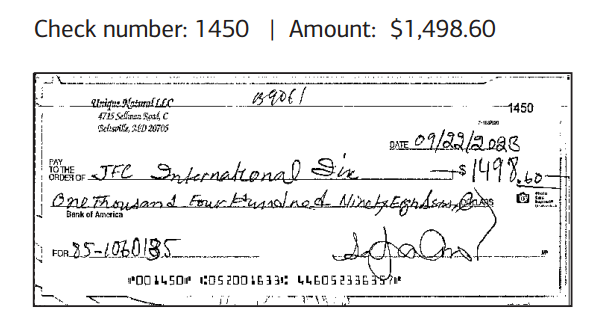 Check number: 1450 | Amount: $1,498.60
39061
Unique Natural LLC
4715 Sellman Road, C
Beltsville, MD 20705
1450
DATE 09/22/2023
PAY TO THE ORDER OF JFC International Inc $1498.60
One Thousand Four Hundred Ninety Eight DOLLARS
Bank of America
FOR 85-1060185
⑈001450⑈ ⑆052001633⑆ 446052336357⑈